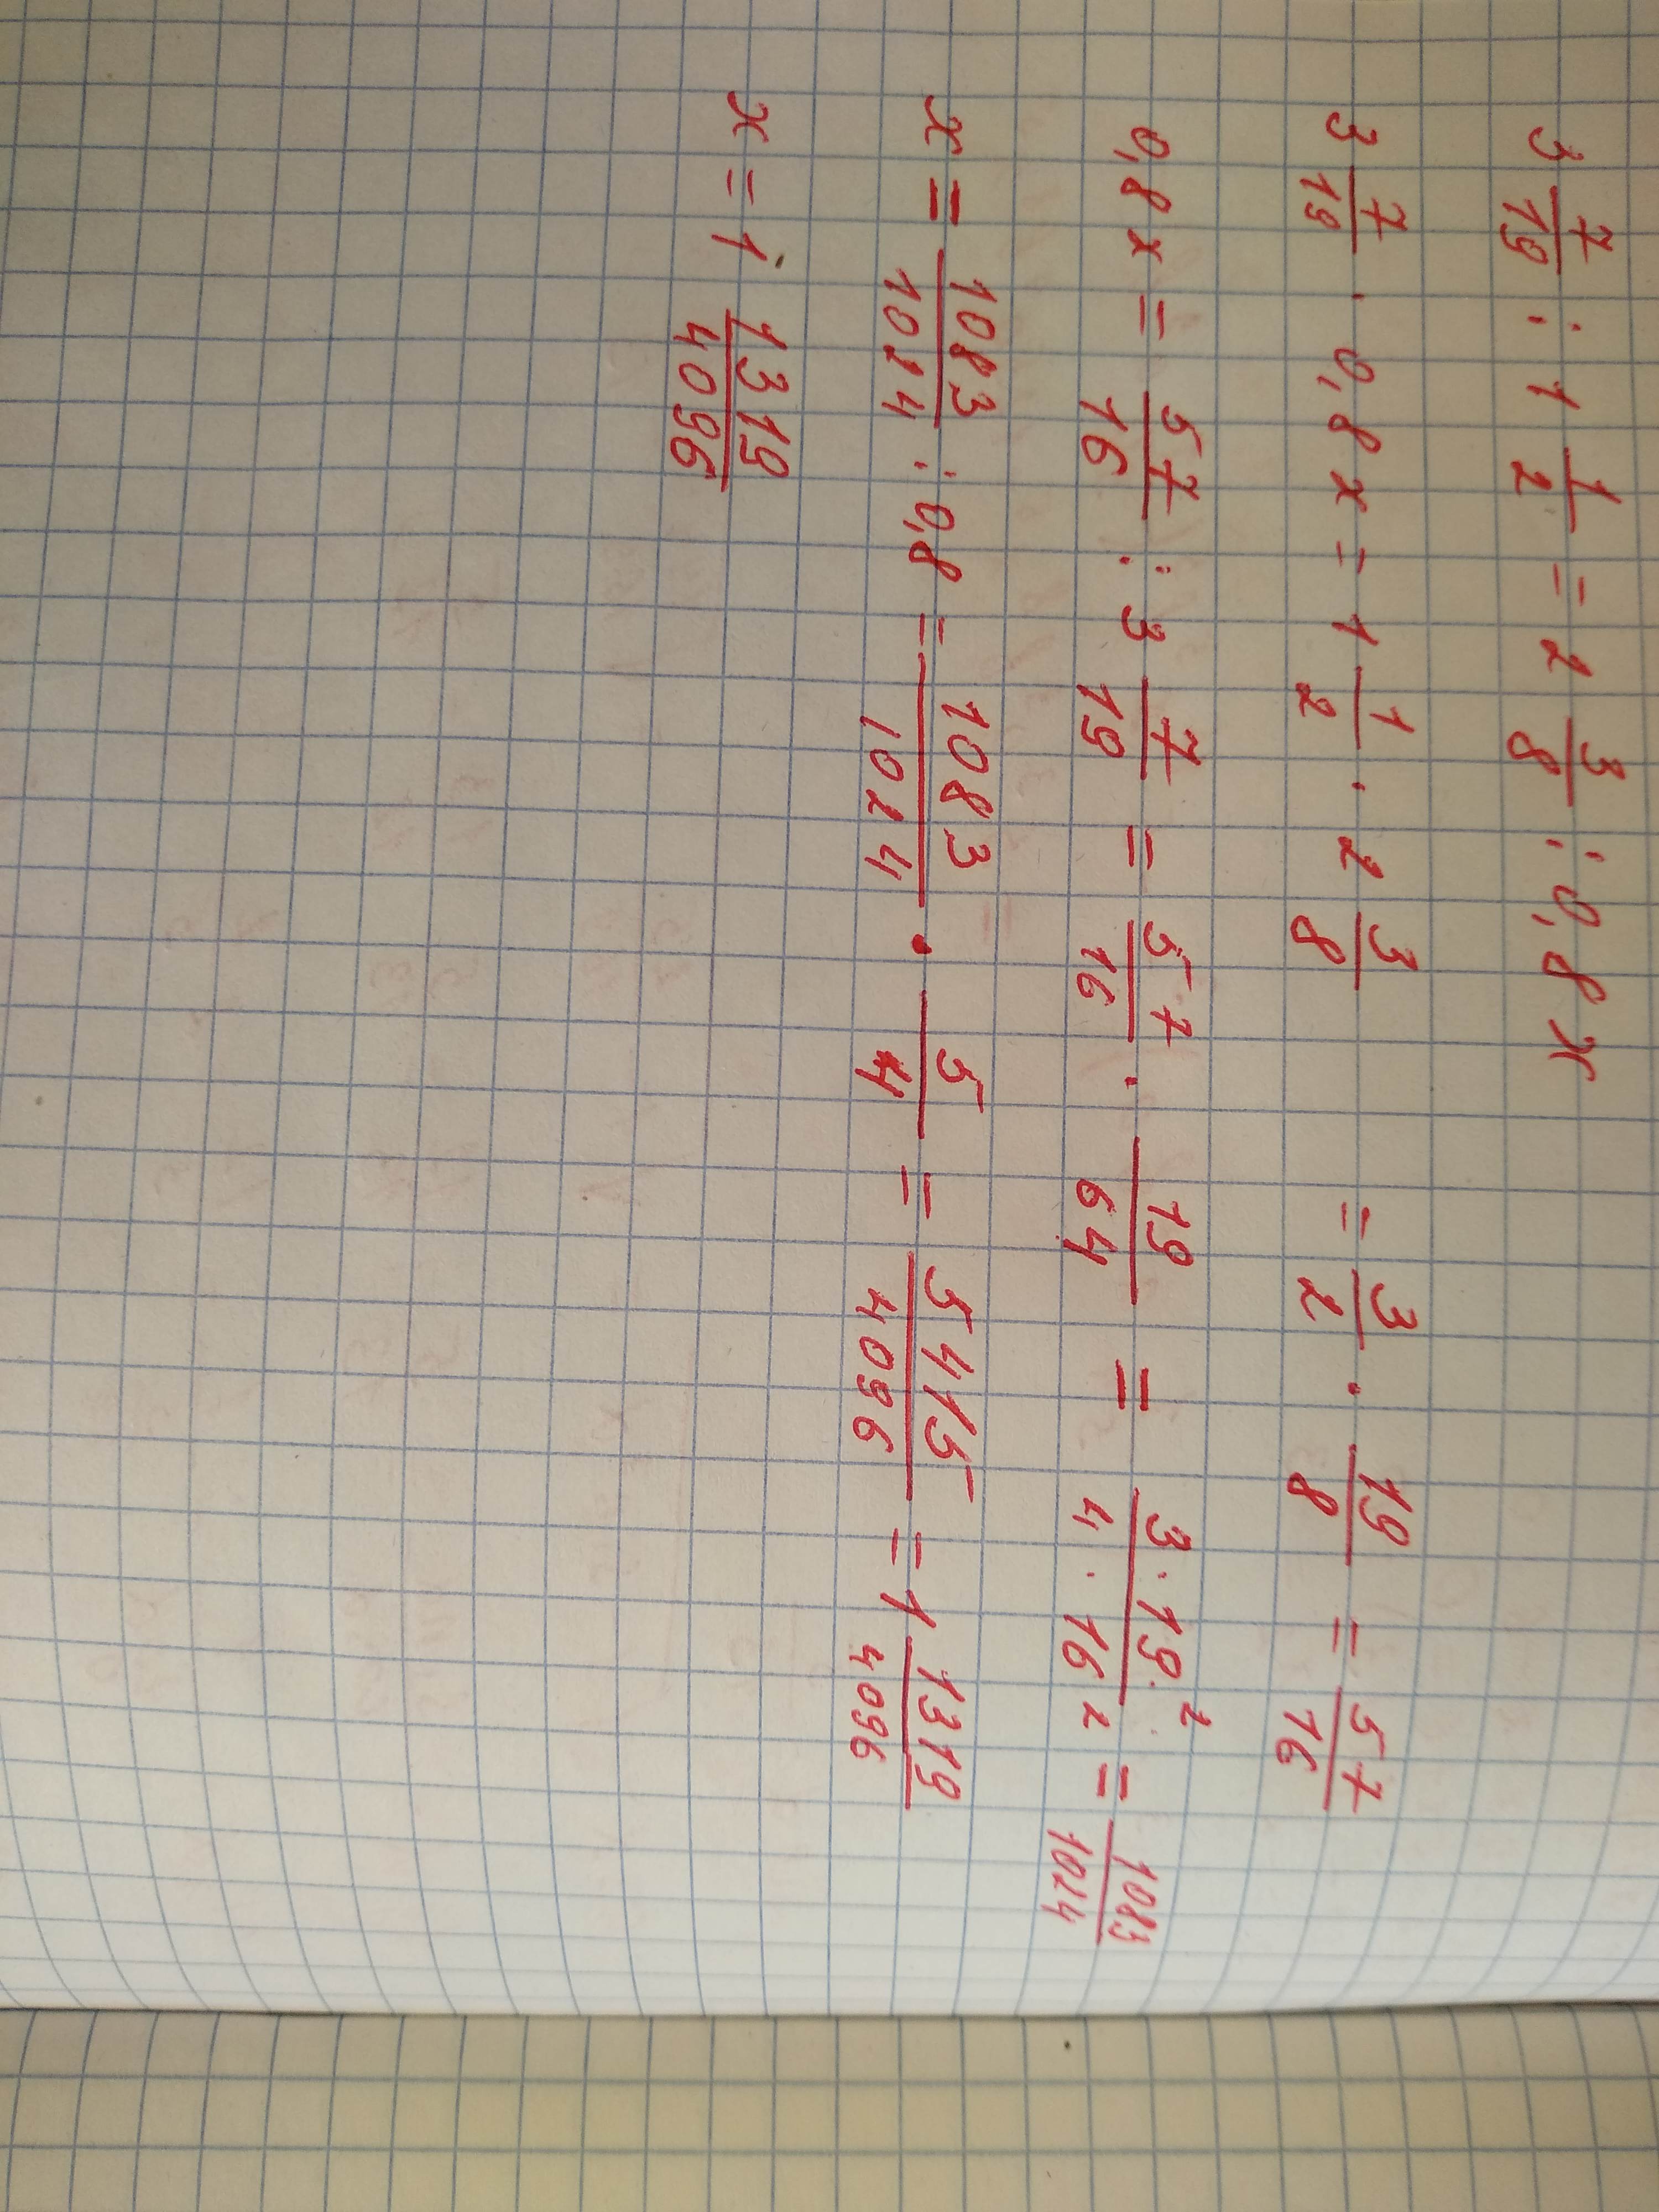 3 7/19 : 1 1/2 = 2 3/8 : 0,8x
3 7/19 · 0,8x = 1 1/2 · 2 3/8 = 3/2 · 19/8 = 57/16
0,8x = 57/16 : 3 7/19 = 57/16 · 19/64 = 3·19²/4·16² = 1083/1024
x = 1083/1024 : 0,8 = 1083/1024 · 5/4 = 5415/4096 = 1 1319/4096
x = 1 1319/4096